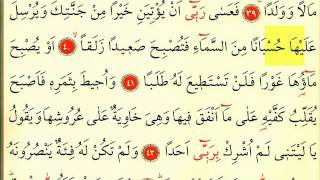 مَالًا وَوَلَدًا ﴿٣٩﴾ فَعَسٰى رَبّٖٓى اَنْ يُؤْتِيَنِ خَيْرًا مِنْ جَنَّتِكَ وَيُرْسِلَ
عَلَيْهَا حُسْبَانًا مِنَ السَّمَٓاءِ فَتُصْبِحَ صَعٖيدًا زَلَقًا ﴿٤٠﴾ اَوْ يُصْبِحَ
مَٓاؤُ۬هَا غَوْرًا فَلَنْ تَسْتَطٖيعَ لَهُ طَلَبًا ﴿٤١﴾ وَاُحٖيطَ بِثَمَرِهٖ فَاَصْبَحَ
يُقَلِّبُ كَفَّيْهِ عَلٰى مَٓا اَنْفَقَ فٖيهَا وَهِىَ خَاوِيَةٌ عَلٰى عُرُوشِهَا وَيَقُولُ
يَا لَيْتَنٖى لَمْ اُشْرِكْ بِرَبّٖٓى اَحَدًا ﴿٤٢﴾ وَلَمْ تَكُنْ لَهُ فِئَةٌ يَنْصُرُونَهُ